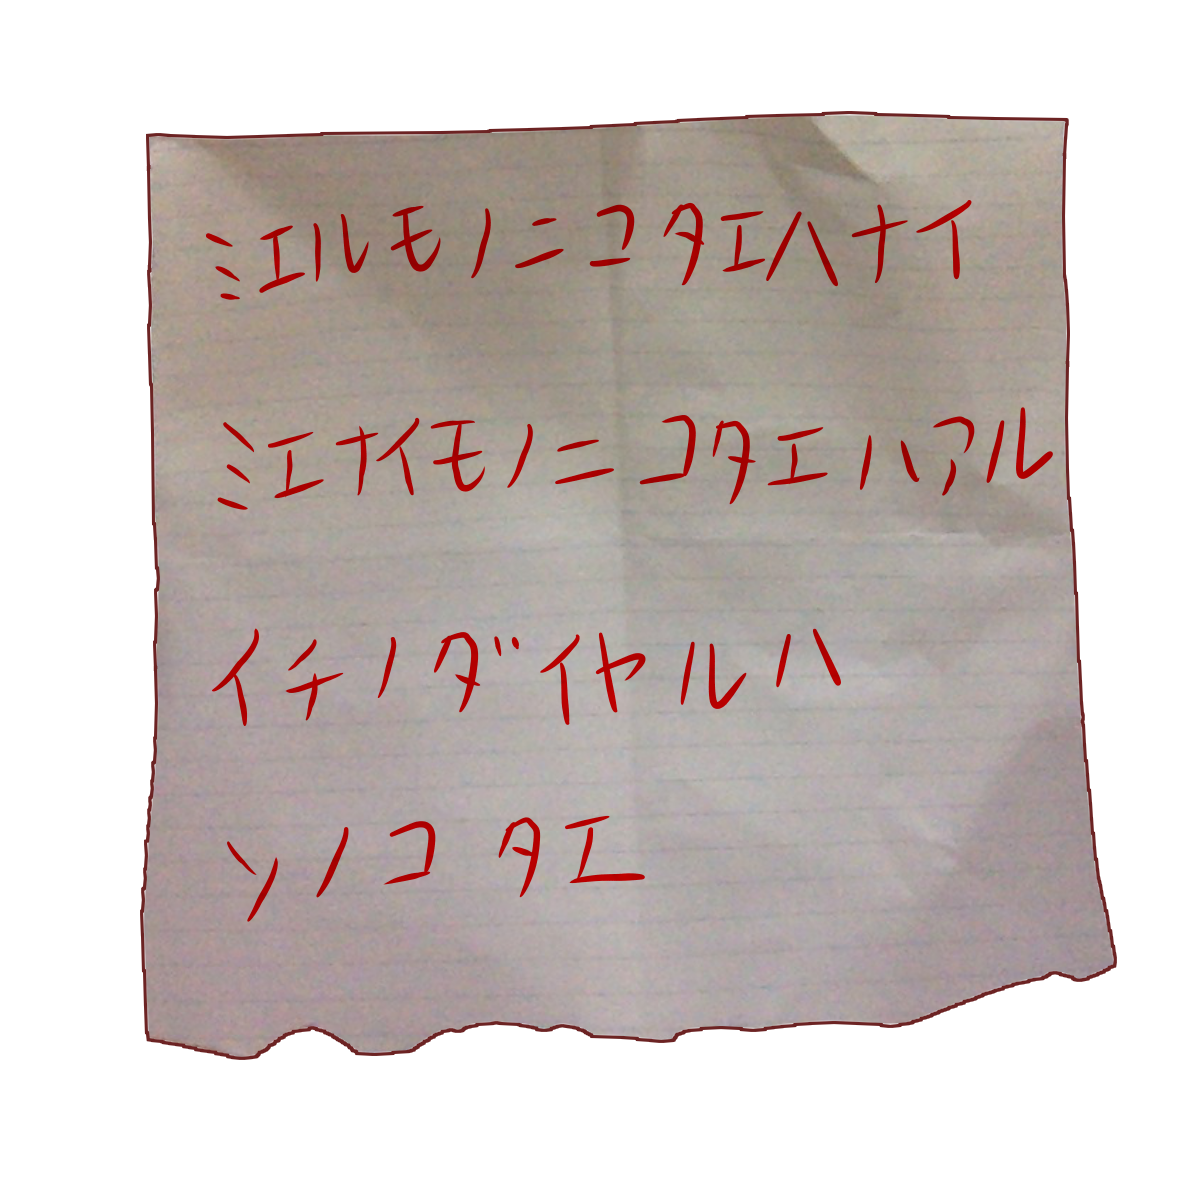 ミエルモノニコタエハナイ
ミエナイモノニコタエハアル
イチノダイヤルハ
ソノコタエ